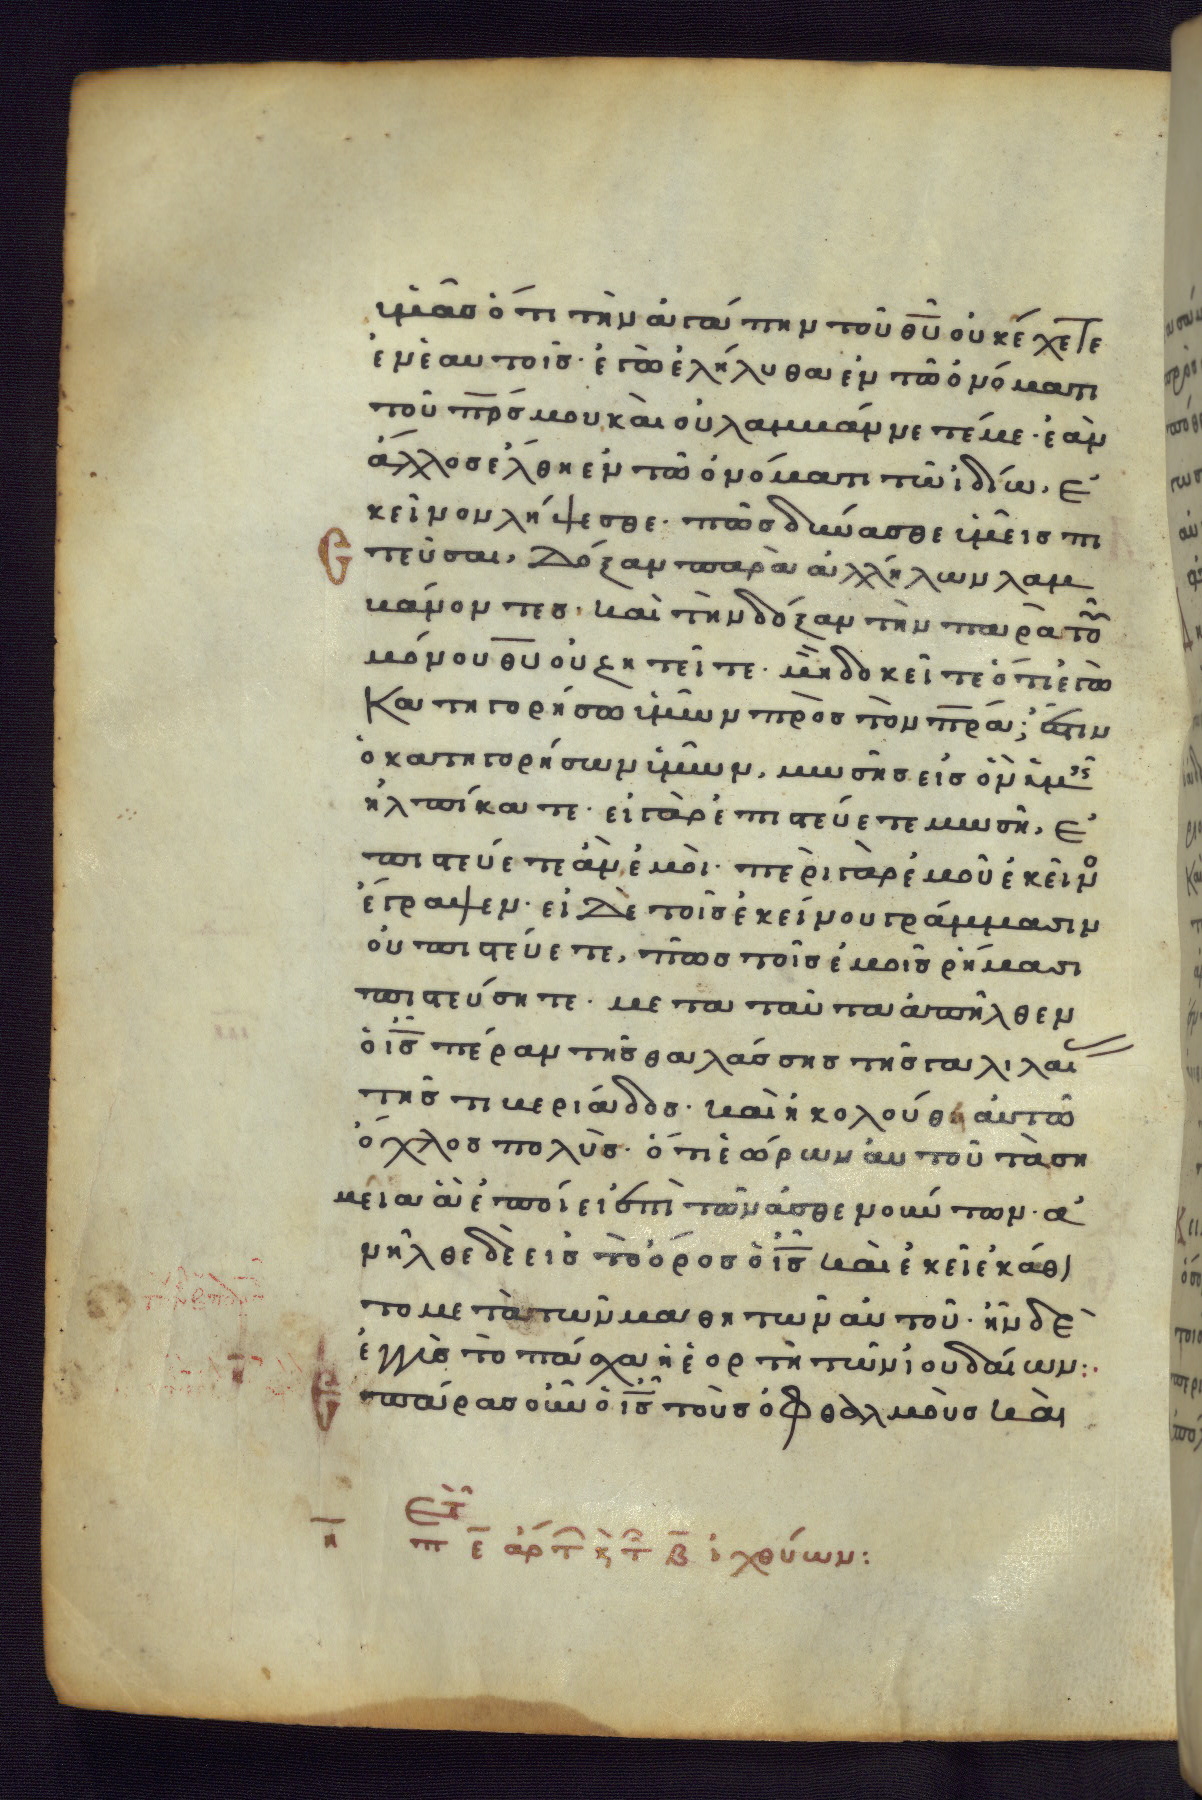 ὑμᾶσ ὅτι τὴν ἀγάπην τοῦ θ̅υ̅ οὐκ ἔχετε
ἐν ἑαυτοῖσ· ἐγὼ ἐλήλυθα ἐν τῶ ὀνόματι
τοῦ π̅ρ̅σ̅ μου καὶ οὐ λαμβάνετέ με· ἐὰν
ἄλλοσ ἔλθη ἐν τῶ ὀνόματι τῶ ἰδίω, ἐ
κεῖνον λήψεσθε· πῶσ δύνασθε ὑμεῖσ πι
στεῦσαι, δόξαν παρὰ ἀλλήλων λαμ
βάνοντεσ· καὶ τὴν δόξαν τὴν παρὰ τοῦ
μόνου θ̅υ̅ οὐ ζητεῖτε· μὴ δοκεῖτε ὅτι ἐγὼ
κατηγορήσω ὑμῶν πρὸσ τὸν π̅ρ̅α̅; ἔστιν
ὁ κατηγορήσων ὑμῶν, μωσῆσ εἰσ ὃν ὑμεῖσ
ἠλπίκατε· εἰ γὰρ ἐπιστεύετε μωσῆ, ἐ
πιστεύετε ἂν ἐμοὶ· περὶ γὰρ ἐμοῦ ἐκεῖνο
ἔγραψεν· εἰ δὲ τοῖσ ἐκείνου γράμμασιν
οὐ πιστεύετε, πῶσ τοῖσ ἐμοῖσ ῥήμασι
πιστεύσητε· μετα ταῦτα ἀπῆλθεν
ὁ ι̅σ̅ πέραν τῆσ θαλάσσησ τῆσ γαλιλαί
τῆσ τιβεριάδοσ· καὶ ἠκολούθει αὐτῶ
ὄχλοσ πολὺσ· ὅτι ἑώρων αὐτοῦ τὰ ση
μεῖα ἃ ἐποίει ἐπὶ τῶν ἀσθενούντων· ἀ
νῆλθε δὲ εἰσ τὸ ὄροσ ὁ ι̅σ̅ καὶ ἐκεῖ ἐκάθη
το μετὰ τῶν μαθητῶν αὐτοῦ· ἦν δὲ
ἐγγὺσ τὸ πάσχα ἡ ἑορτὴ τῶν ἰουδαίων:·
ἐπάρασ οὖν ὁ ι̅σ̅ τοὺσ ὀφθαλμοὺσ καὶ
η̅ π ε̅ ἄρτ κ τ β̅ ἰχθύων: